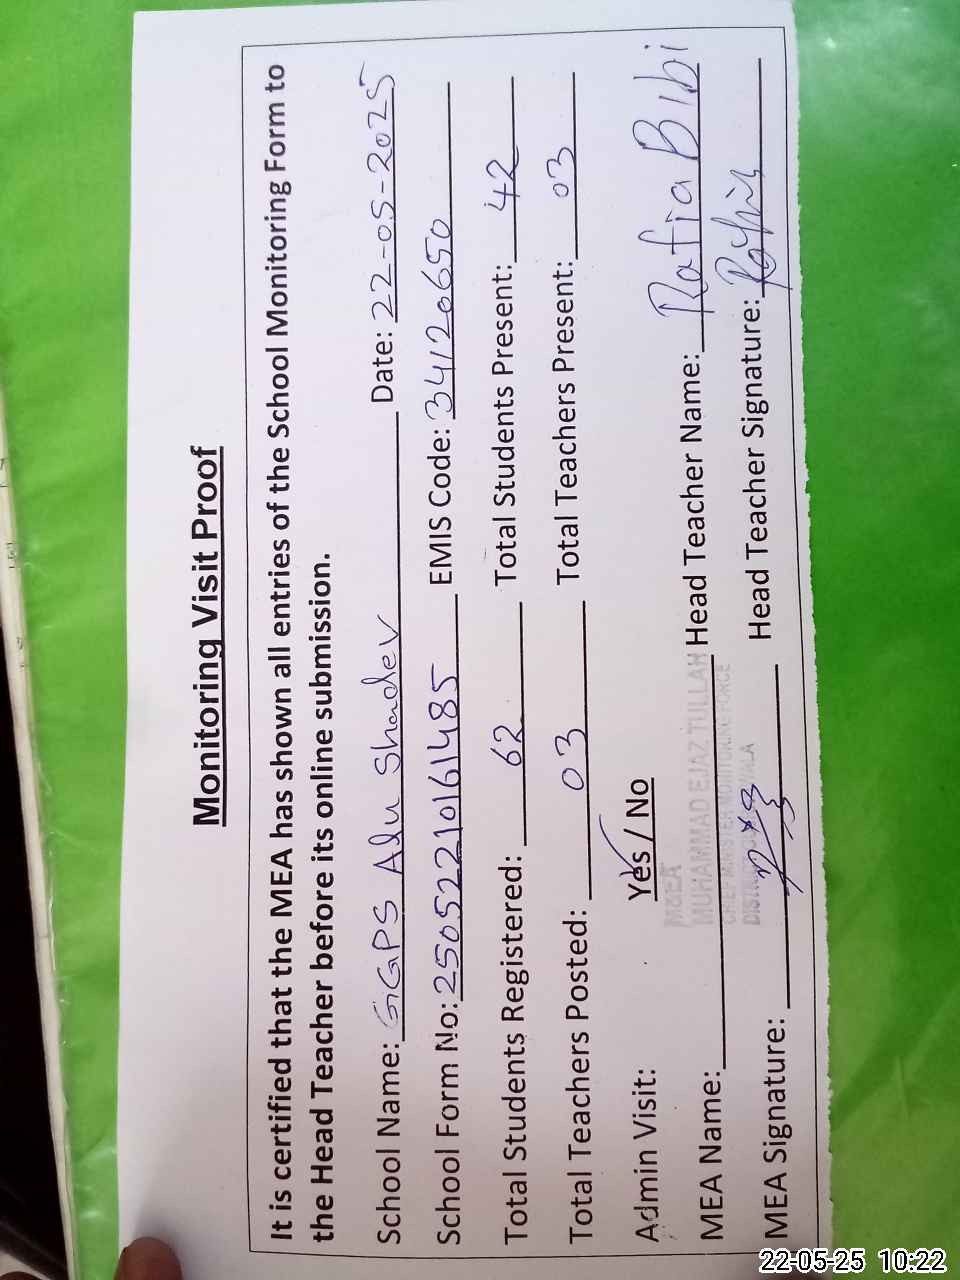 Monitoring Visit Proof
It is certified that the MEA has shown all entries of the School Monitoring Form to
the Head Teacher before its online submission.
School Name: GGPS Adu Shadev Date: 22-05-2025
School Form No: 25052210161485 EMIS Code: 34120650
Total Students Registered: 62 Total Students Present: 42
Total Teachers Posted: 03 Total Teachers Present: 03
Admin Visit: Yes / No
M&EA
MUHAMMAD EJAZ TULLAH
CHIEF MINISTER MONITORING FORCE
MEA Name: Head Teacher Name: Rafia Bibi
MEA Signature: Head Teacher Signature: Rafia
22-05-25 10:22